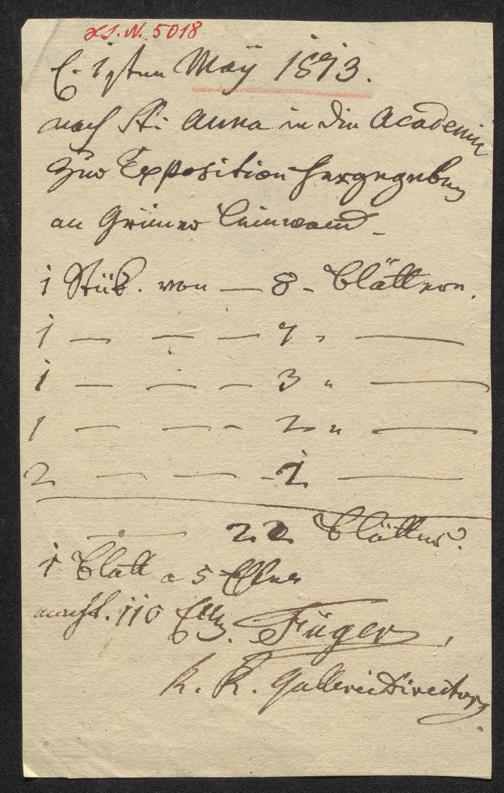 H.I.N. 5018
d. 1sten Maÿ 1813.
nach St: Anna in die Academie
zur Exposition hergegeben
an Grüner Leinwand.
1 Stük. von — 8 - Blättern.
1 — — — 7 " —
1 — — — 3 " —
1 — — - 2 " —
2 — — - 1 —
22 Blätter.
1 Blatt a 5 Ellen
macht. 110 Ellen. Füger,
k. k. Gallerie Director